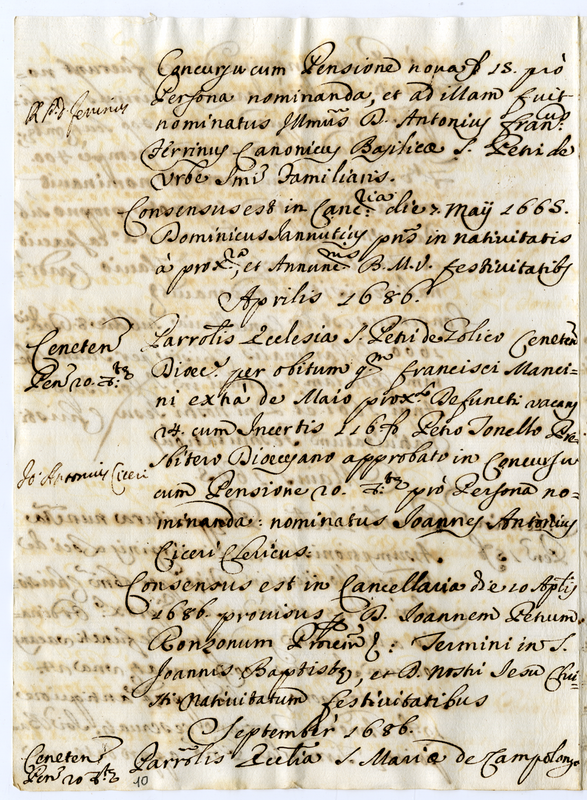 Concursu cum Pensione nova ∯ 18. pró
R. P. D. Ferrinus
Persona nominanda, et ad illam fuit
nominatus Illmus D. Antonius Francus
Ferrinus Canonicus Basilicæ S. Petri de
Urbe Smi Familiaris.
Consensus est in Cancria die 7. Maÿ 1668.
Dominicus Iannutius pns in nativitatis
à proxa, et Annunnis B. M. V. festivitatibs
Aprilis 1686.
Ceneten
Penˢ 20. Dtz
Parrolis Ecclesia S. Petri de Polico Ceneten
Diœc. per obitum qm Francisci Manci-
ni extrà de Maio proxè Defuncti vacans
24. cum Incertis 116 ∯ Petro Tonello Pre-
Jo: Antonius Ciceri
sbitero Diœcesano approbato in Concursu
cum Pensione 20. Dtz pró Persona no-
minanda: nominatus Ioannes Antonius
Ciceri Clericus:
Consensus est in Cancellaria die 10 Aplis
1686. provisus ∯ D. Ioannem Petrum
Ronzonum Procem: Termini in S.
Joannis Baptistæ, et D. Nostri Iesu Chri-
sti Nativitatum festivitatibus
Septembr 1686.
Ceneten
Penˢ 20 Dtz
Parrolis Ecclia S. Mariæ de Campolongo
10